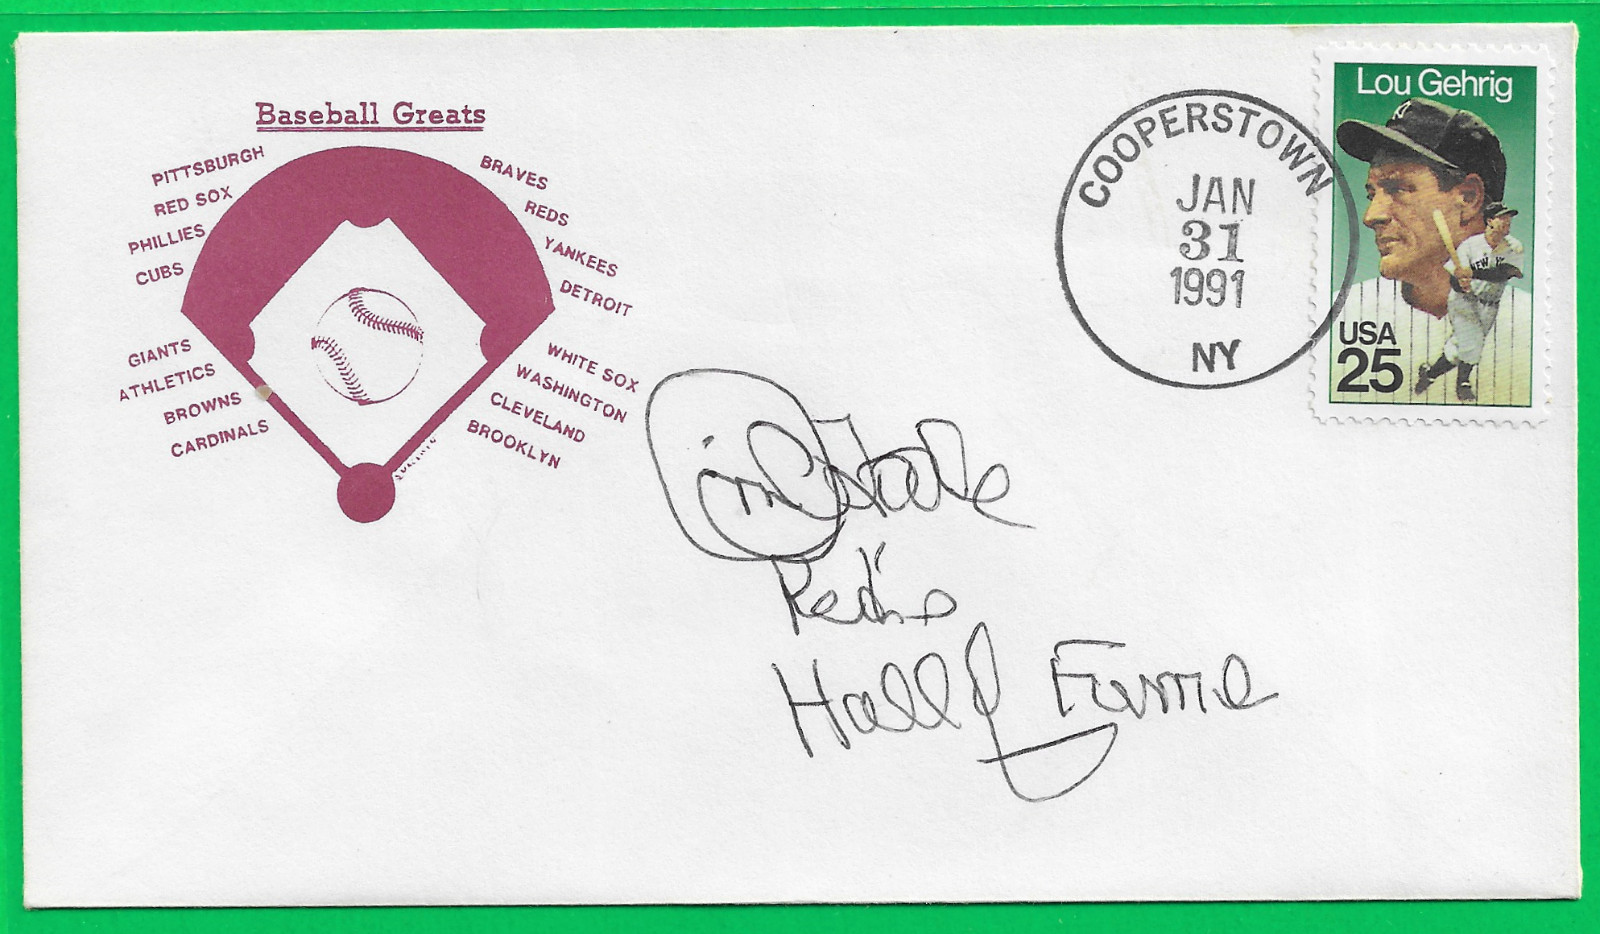 Baseball Greats
PITTSBURGH
RED SOX
PHILLIES
CUBS
GIANTS
ATHLETICS
BROWNS
CARDINALS
BRAVES
REDS
YANKEES
DETROIT
WHITE SOX
WASHINGTON
CLEVELAND
BROOKLYN
COOPERSTOWN
JAN
31
1991
NY
Lou Gehrig
NEW
USA
25
Jim
Reds
Hall of Fame